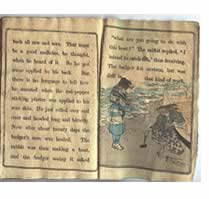 back all raw and sore. That must
be a good medicine, he thought,
when he heard of it. So he got
some applied to his back. But
there is no language to tell how
he smarted when the red-pepper
sticking plaster was applied to his
raw skin. He just rolled over and
over and howled long and bitterly.
Now after about twenty days the
badger's sore was healed. The
rabbit was then making a boat,
and the badger seeing it asked
"what are you going to do with
this boat?" The rabbit replied, "I
intend to
thus deceiving.
The badger
but was
that kind of work.